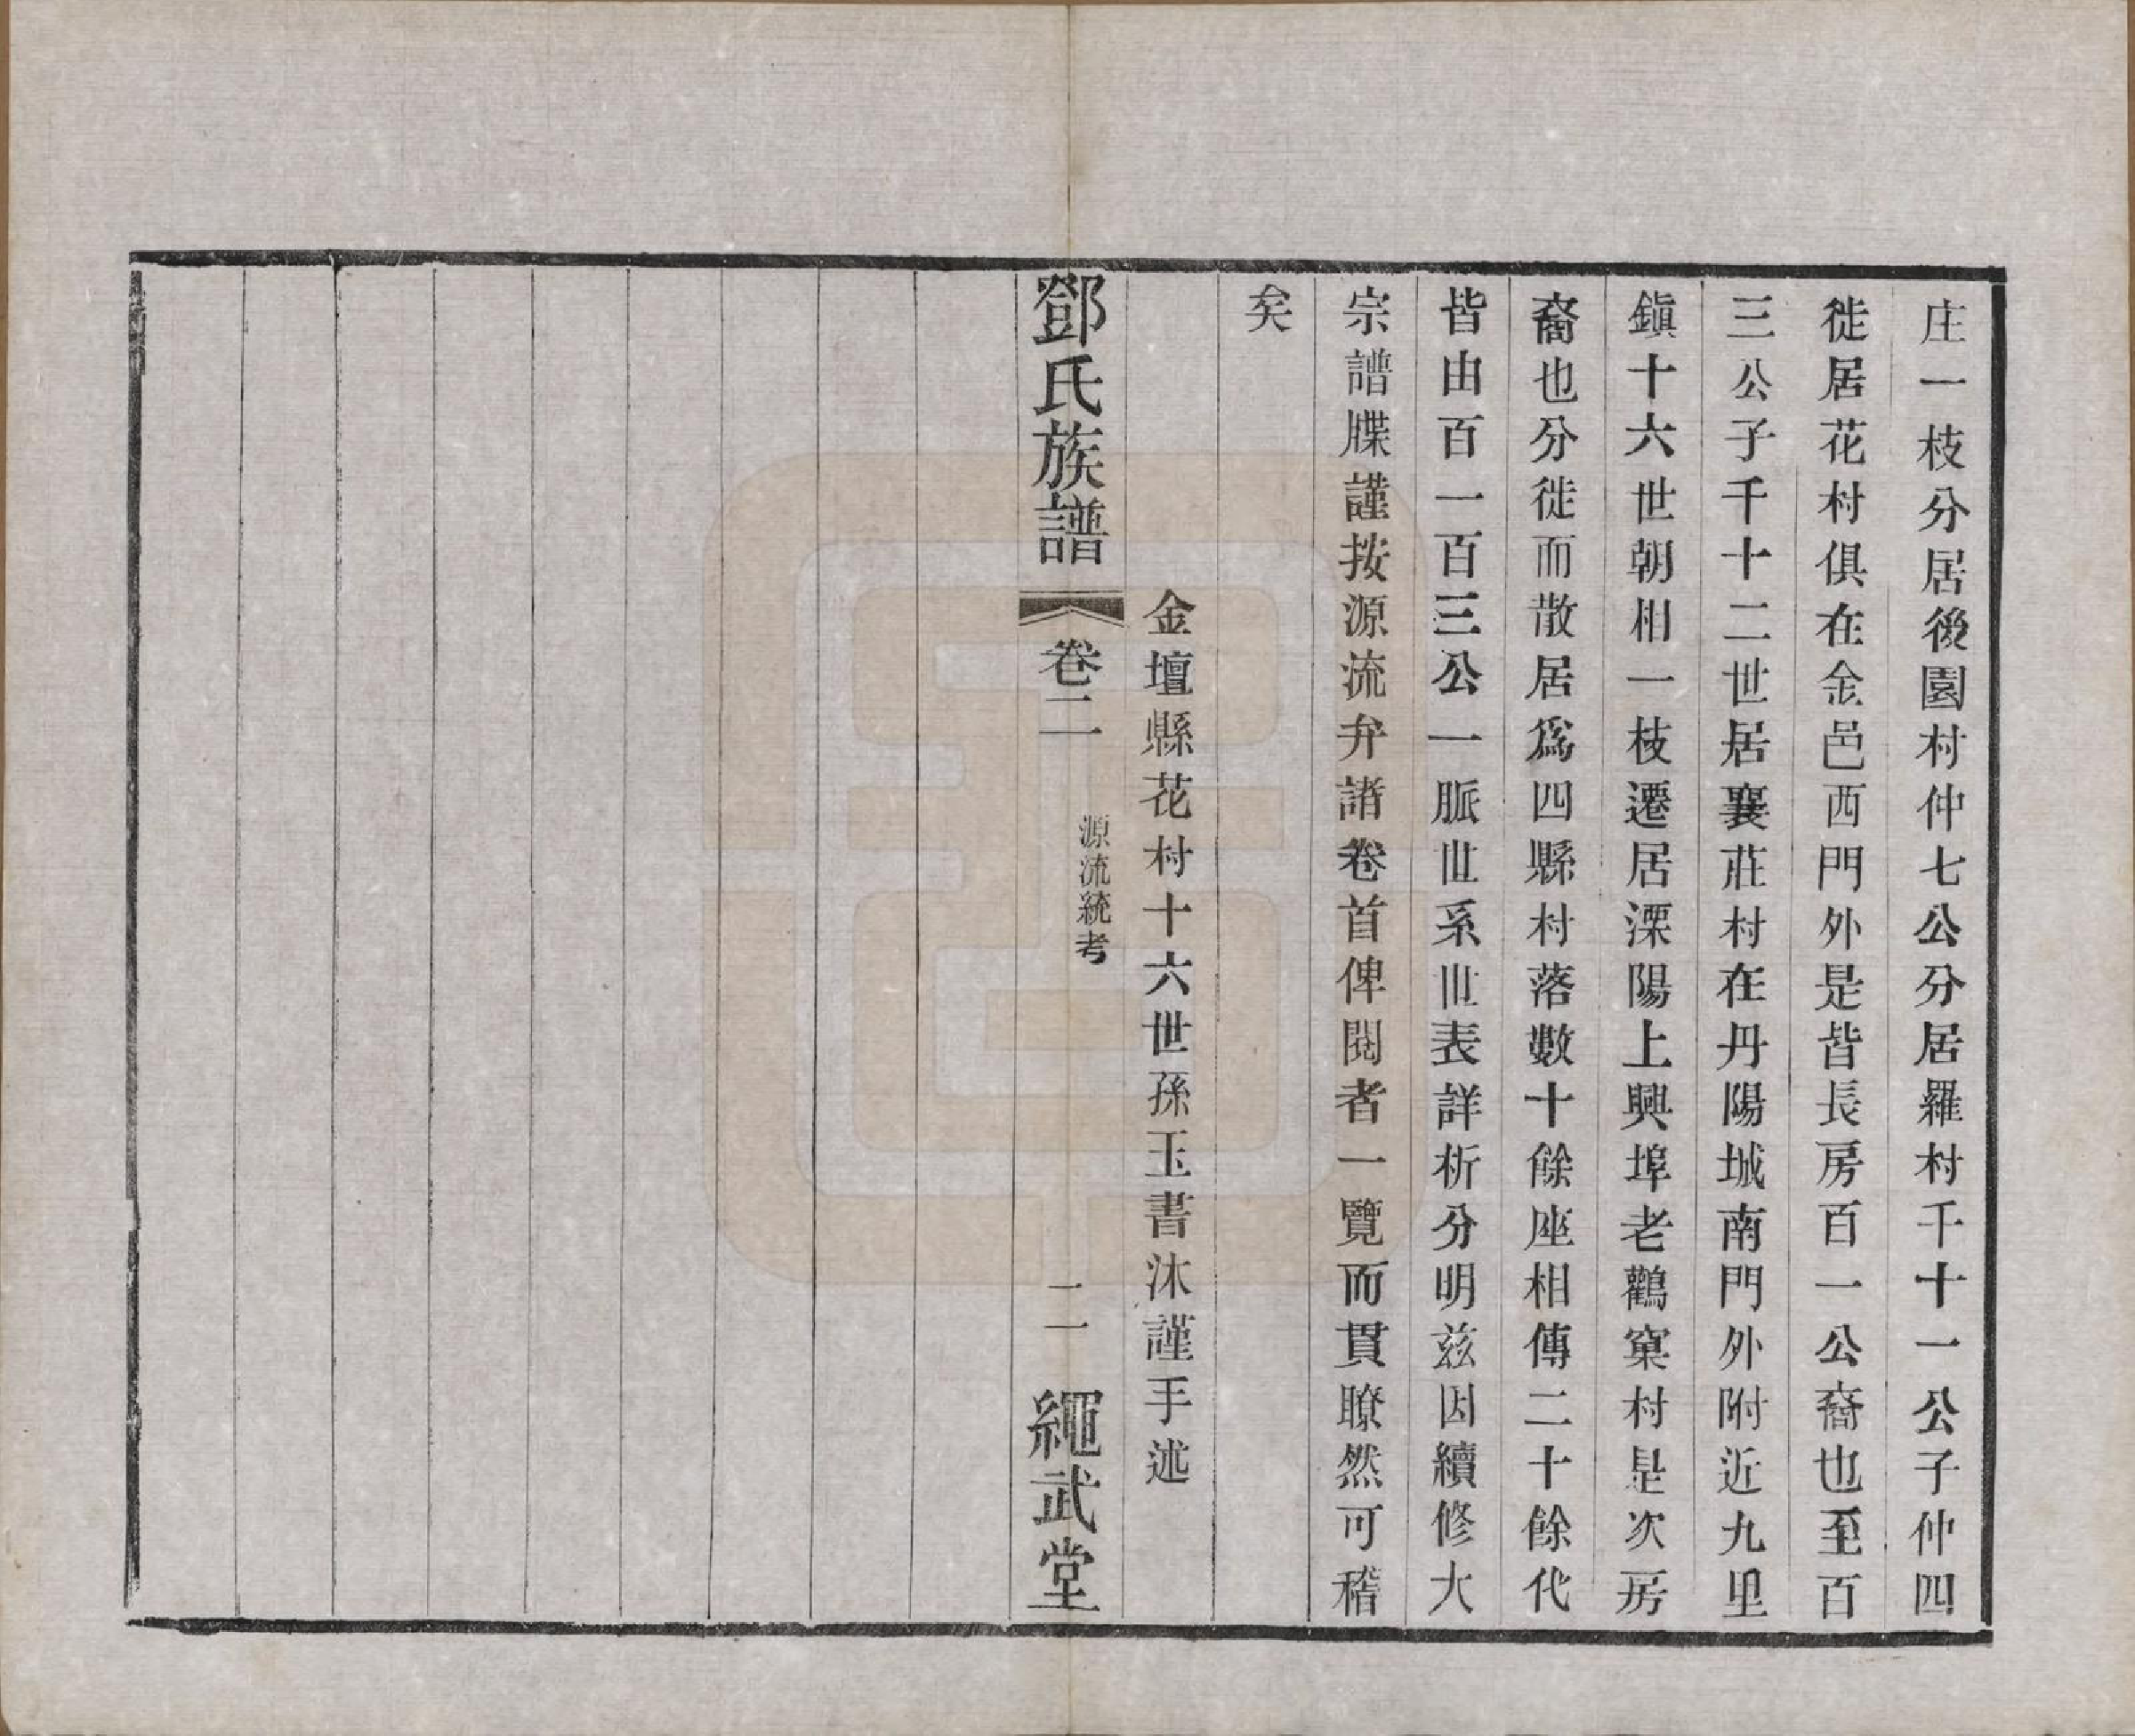 庄一枝分居後園村仲七公分居羅村千十一公子仲四
徙居花村俱在金邑西門外是皆長房百一公裔也至百
三公子千十二世居襄莊村在丹陽城南門外附近九里
鎮十六世朝相一枝遷居溧陽上興埠老鸛窠村是次房
裔也分徙而散居爲四縣村落數十餘座相傳二十餘代
皆由百一百三公一脈世系世表詳析分明兹因續修大
宗譜牒謹按源流弁諸卷首俾閱者一覽而貫瞭然可稽
矣
金壇縣花村十六世孫玉書沐謹手述
鄧氏族譜 卷二 源流統考 二 繩武堂